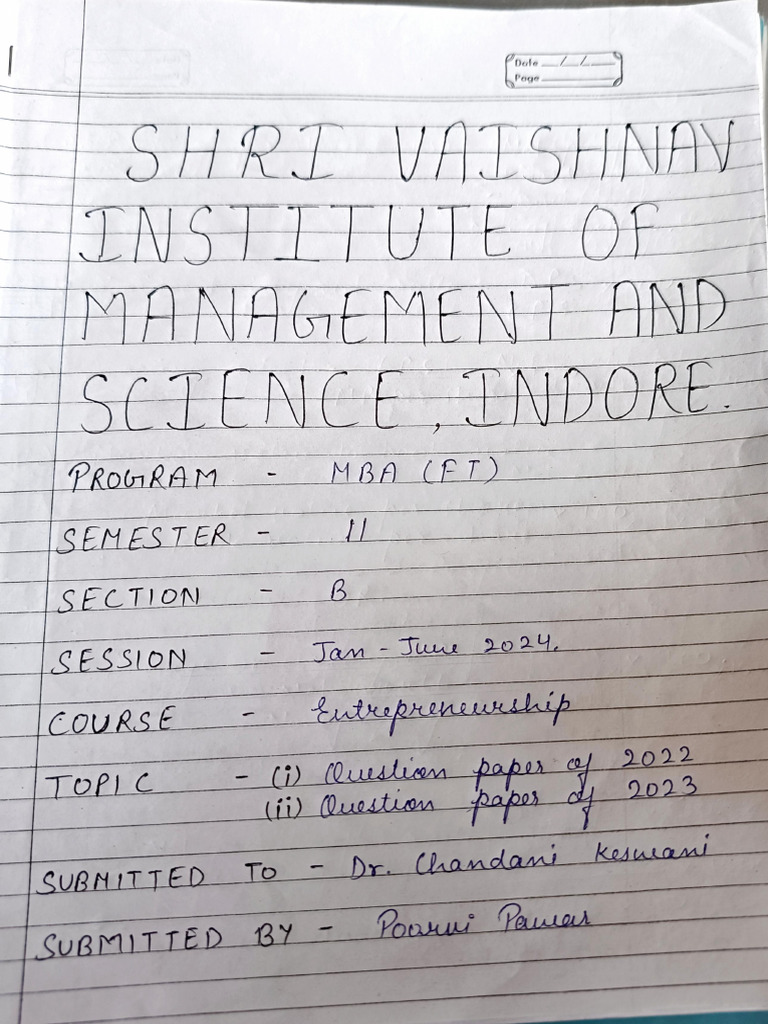 Date __/__/__
Page
SHRI VAISHNAV
INSTITUTE OF
MANAGEMENT AND
SCIENCE, INDORE.
PROGRAM - MBA (FT)
SEMESTER - II
SECTION - B
SESSION - Jan - June 2024.
COURSE - Entrepreneurship
TOPIC - (i) Question paper of 2022
(ii) Question paper of 2023
SUBMITTED TO - Dr. Chandani Keswani
SUBMITTED BY - Poorvi Pawar